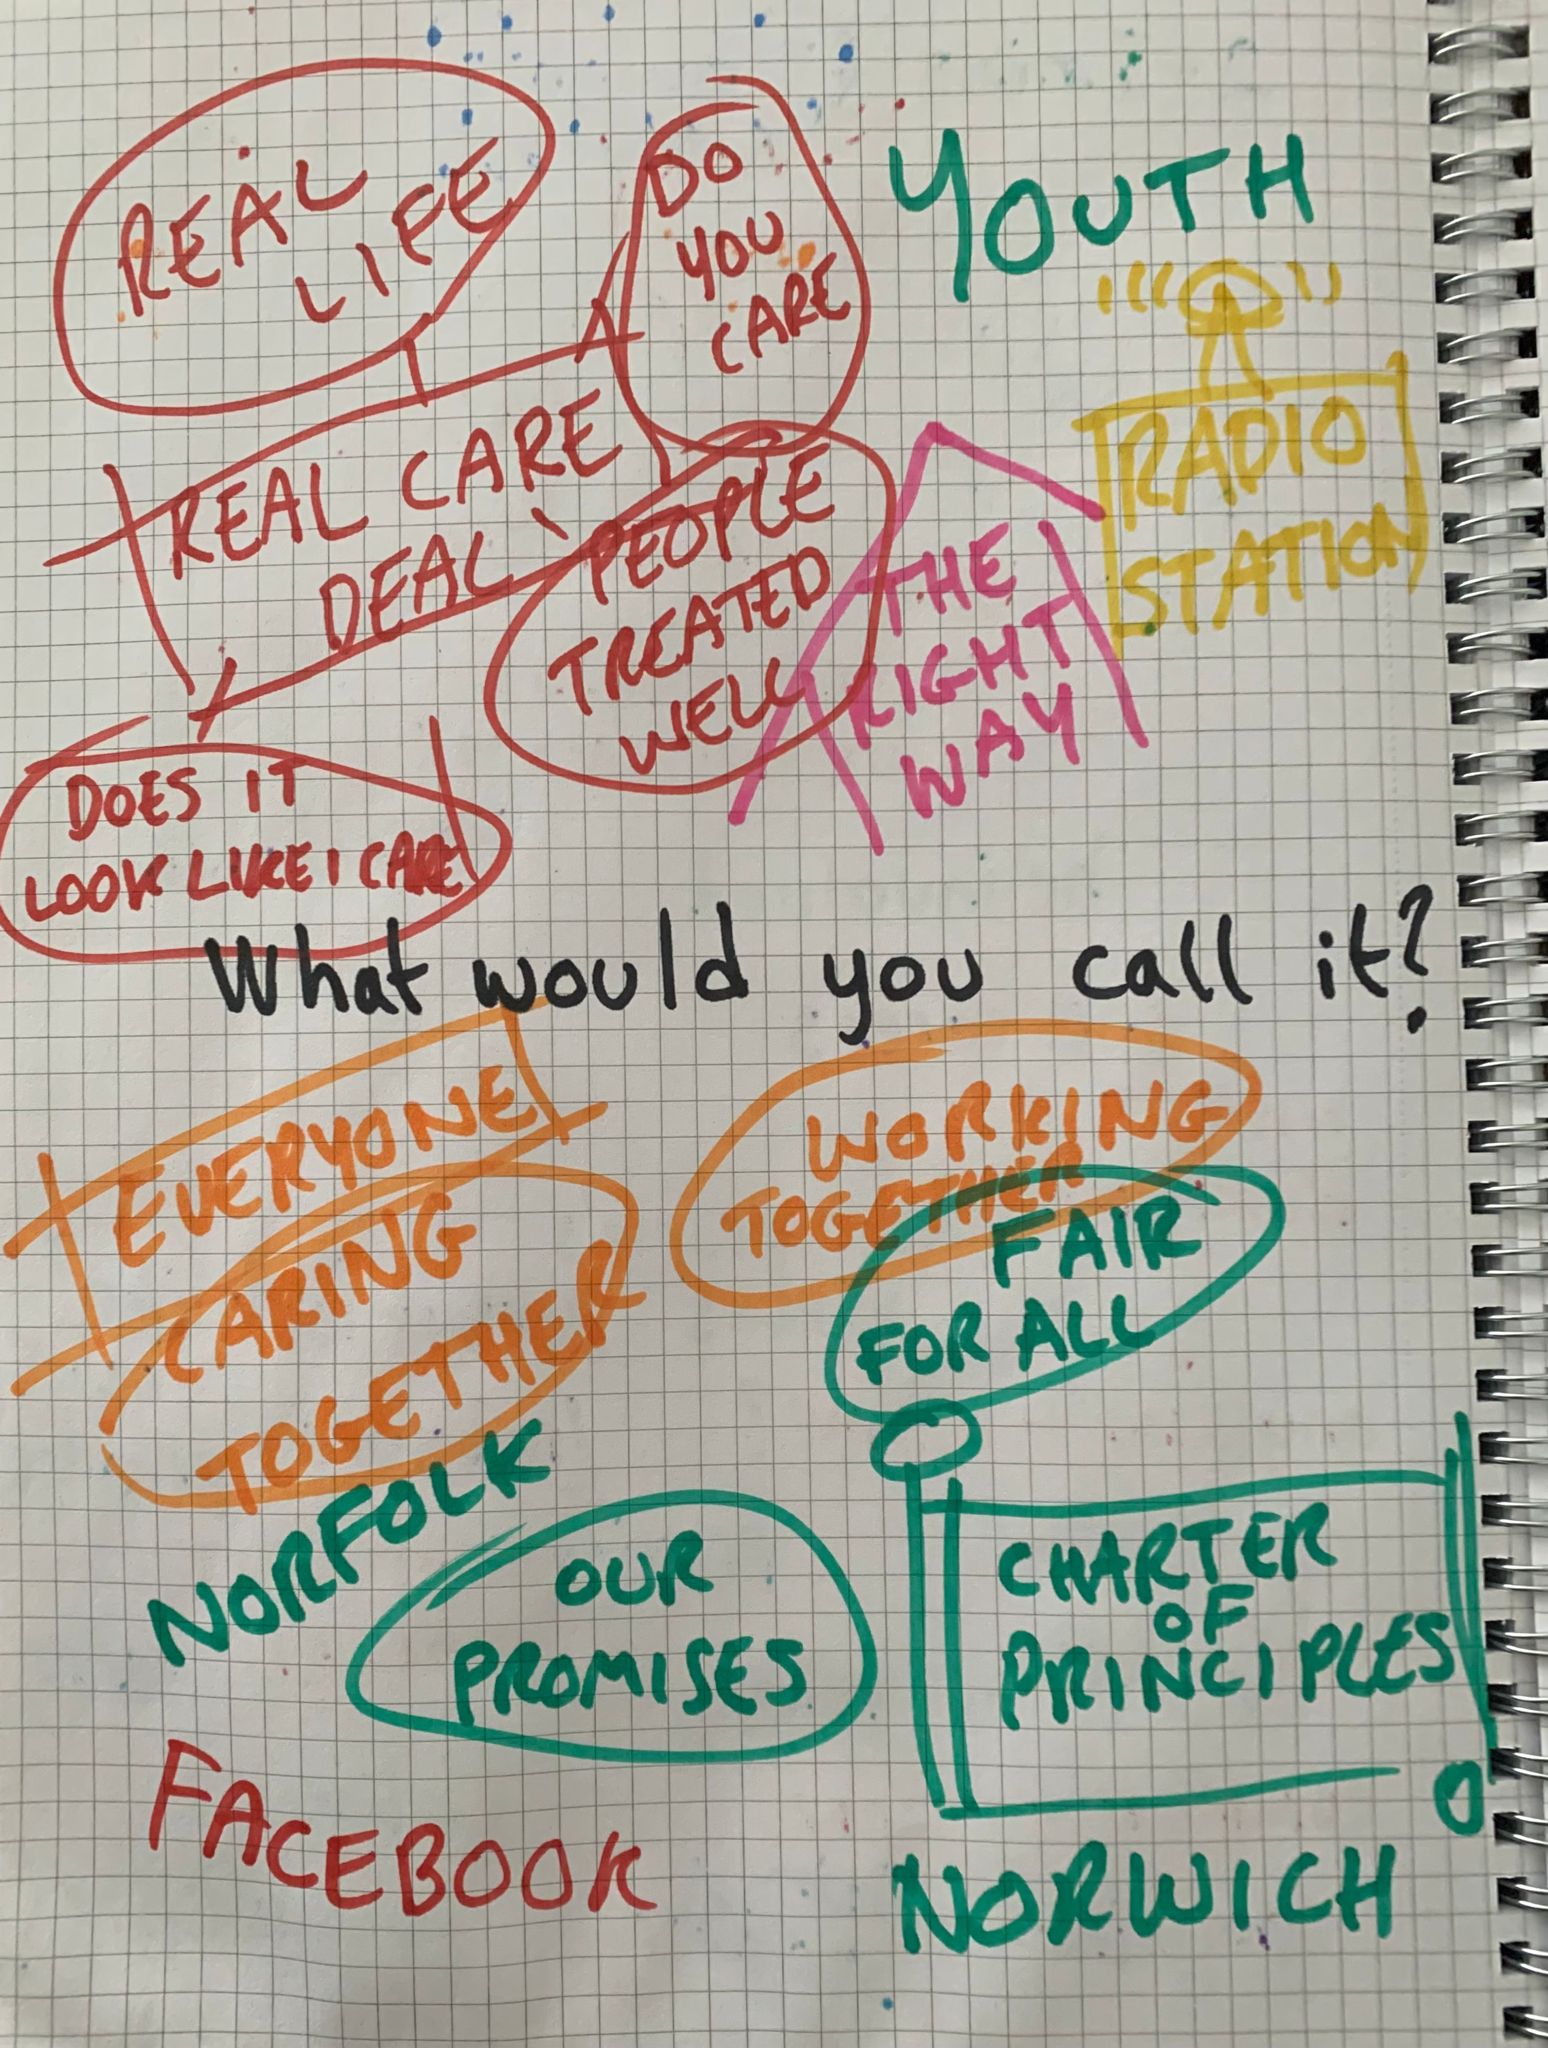 REAL
LIFE
DO
YOU
CARE
YOUTH
REAL CARE
DEAL
PEOPLE
TREATED
WELL
THE
RIGHT
WAY
RADIO
STATION
DOES IT
LOOK LIKE I CARE
What would you call it?
EVERYONE
CARING
TOGETHER
WORKING
TOGETHER
FAIR
FOR ALL
NORFOLK
OUR
PROMISES
CHARTER
OF
PRINCIPLES
FACEBOOK
NORWICH